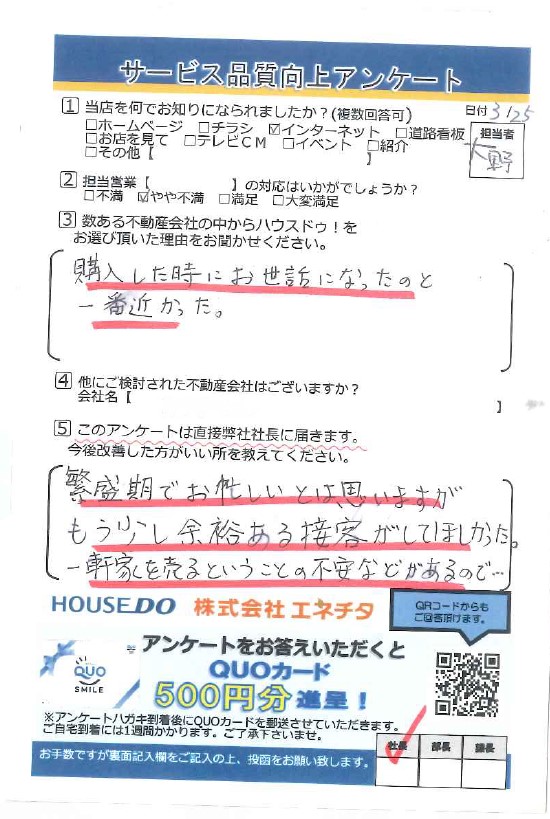 サービス品質向上アンケート
1 当店を何でお知りになられましたか?(複数回答可)
日付 3/25
□ホームページ □チラシ ☑インターネット □道路看板
□お店を見て □テレビCM □イベント □紹介
□その他【 】
担当者
大野
2 担当営業【 】の対応はいかがでしょうか?
□不満 ☑やや不満 □満足 □大変満足
3 数ある不動産会社の中からハウスドゥ!を
お選び頂いた理由をお聞かせください。
購入した時にお世話になったのと
一番近かった。
4 他にご検討された不動産会社はございますか?
会社名【 】
5 このアンケートは直接弊社社長に届きます。
今後改善した方がいい所を教えてください。
繁盛期でお忙しいとは、思いますが
もう少し余裕ある接客がしてほしかった。
一軒家を売るということの不安などがあるので…
HOUSEDO 株式会社 エネチタ
QRコードからも
ご回答頂けます。
アンケートをお答えいただくと
QUOカード
500円分 進呈!
QUO
SMILE
※アンケートハガキ到着後にQUOカードを郵送させていただきます。
ご自宅到着には1週間かかります。ご了承下さいませ。
お手数ですが裏面記入欄をご記入の上、投函をお願い致します。
社長 部長 課長